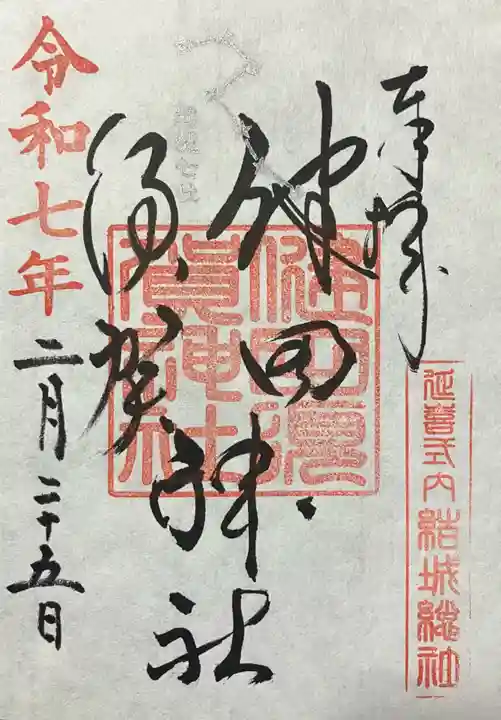 奉拝
延喜式内結城総社
健田
須賀
神社
健田須賀神社
令和七年二月二十五日